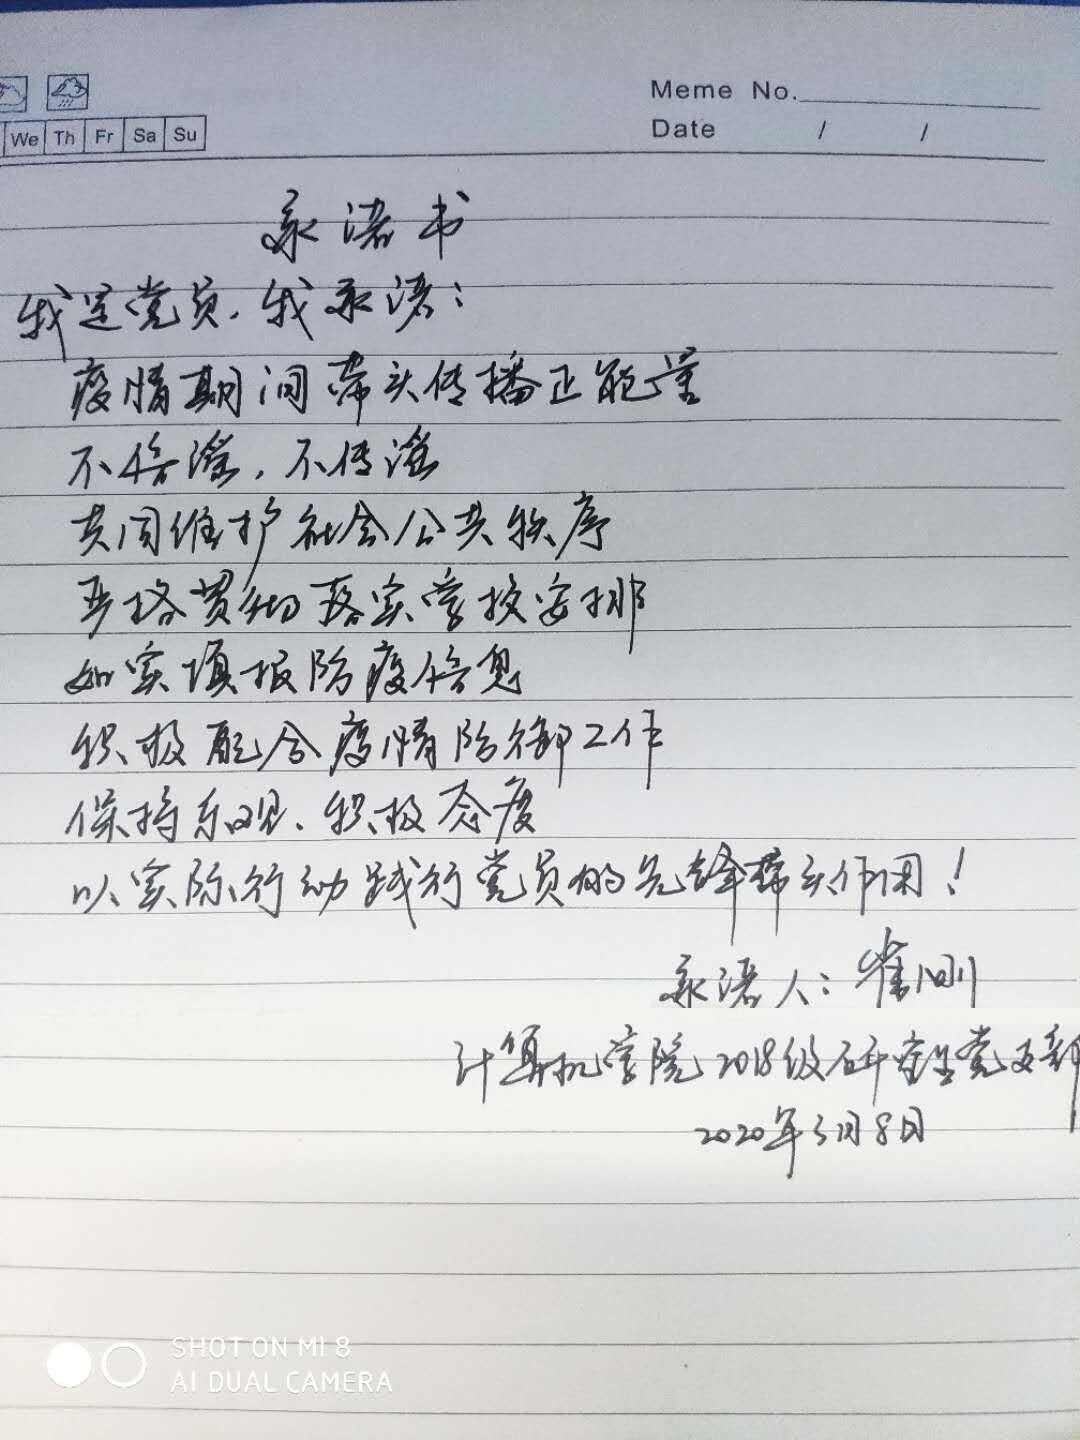 Meme No.
Date / /
We Th Fr Sa Su
承诺书
我是党员，我承诺：
疫情期间带头传播正能量
不信谣，不传谣
共同维护社会公共秩序
严格贯彻落实学校安排
如实填报防疫信息
积极配合疫情防御工作
保持乐观、积极态度
以实际行动践行党员的先锋带头作用！
承诺人：崔刚
计算机学院2018级研究生党支部
2020年3月8日
SHOT ON MI 8
AI DUAL CAMERA